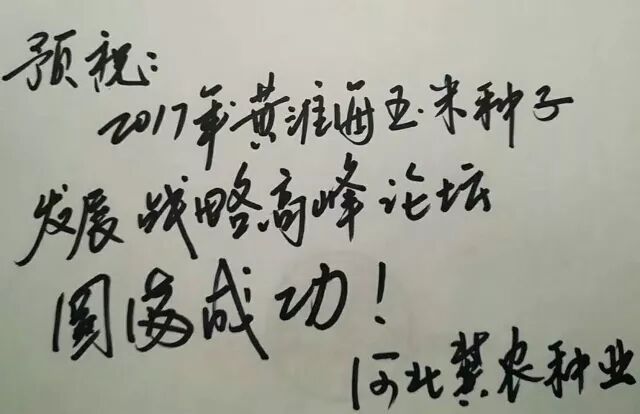 预祝:
2017年黄淮海玉米种子
发展战略高峰论坛
圆满成功!
河北冀农种业